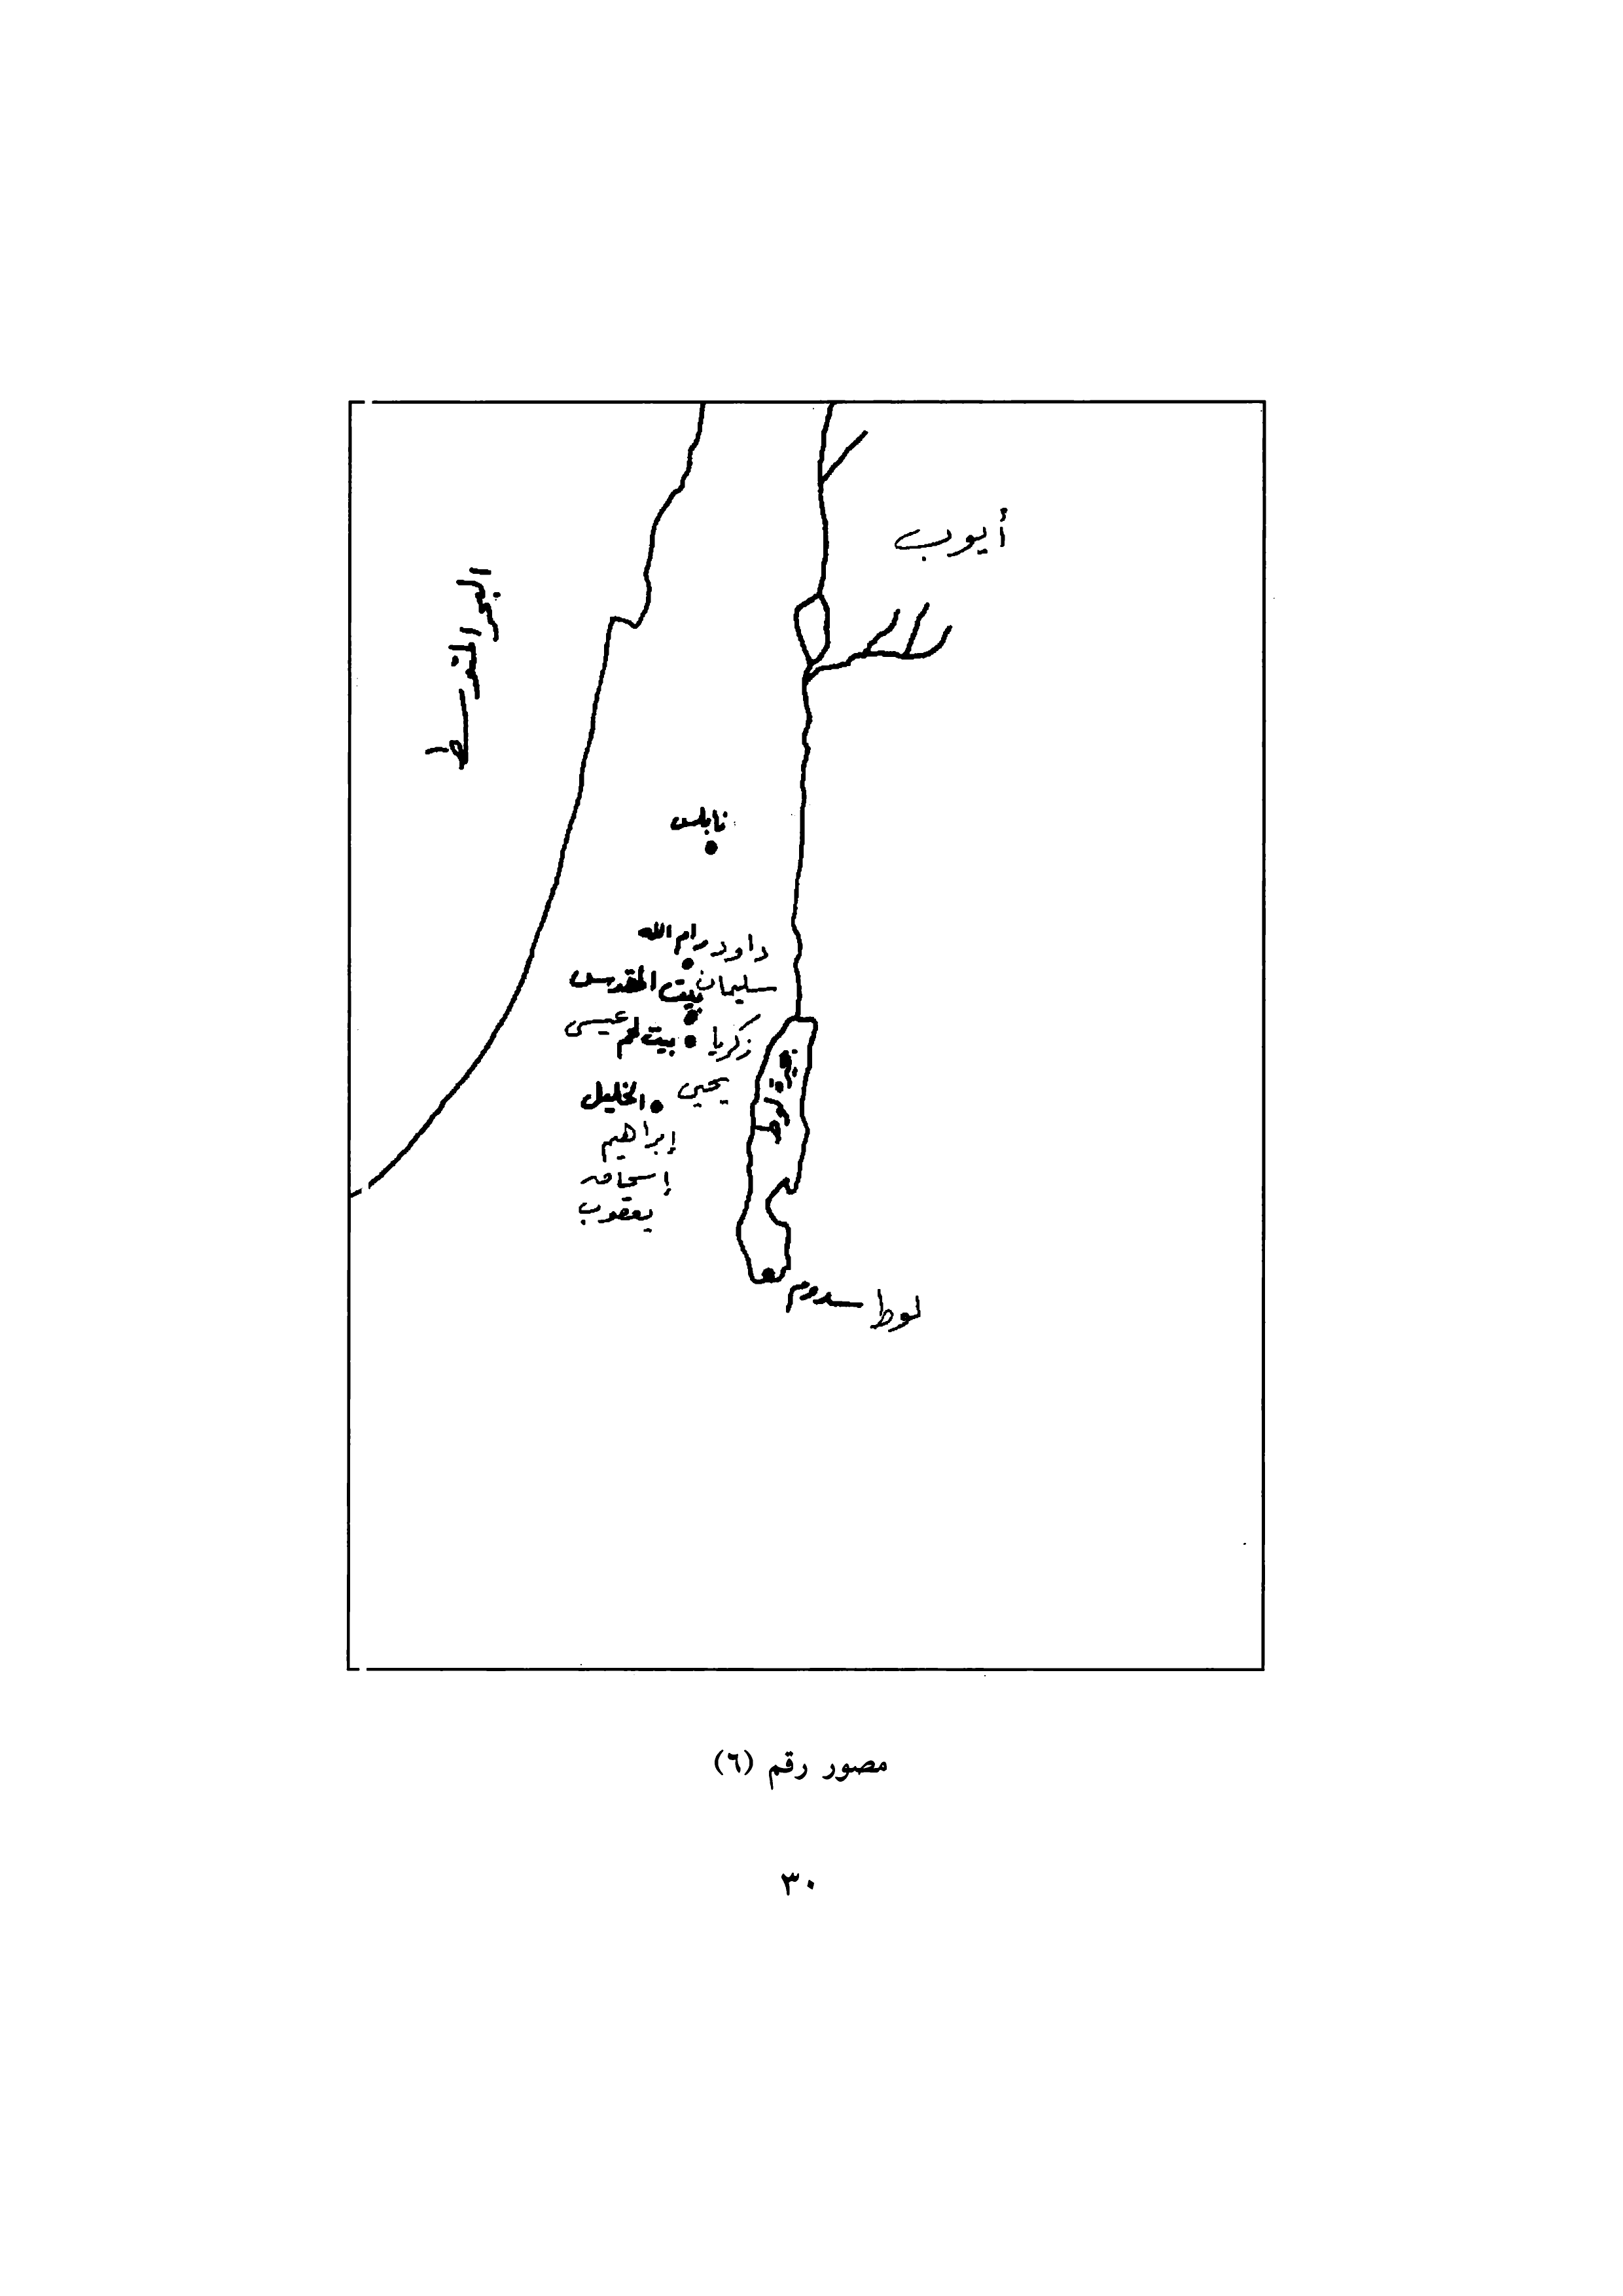 أيوب
البحر المتوسط
نابلس
داود رام الله
سليمان بيت المقدس
زكريا بيت لحم عيسى
يحيى
الخليل
إبراهيم
إسحاق
يعقوب
بحيرة لوط
لوط سدوم
مصور رقم (٦)
٣٠